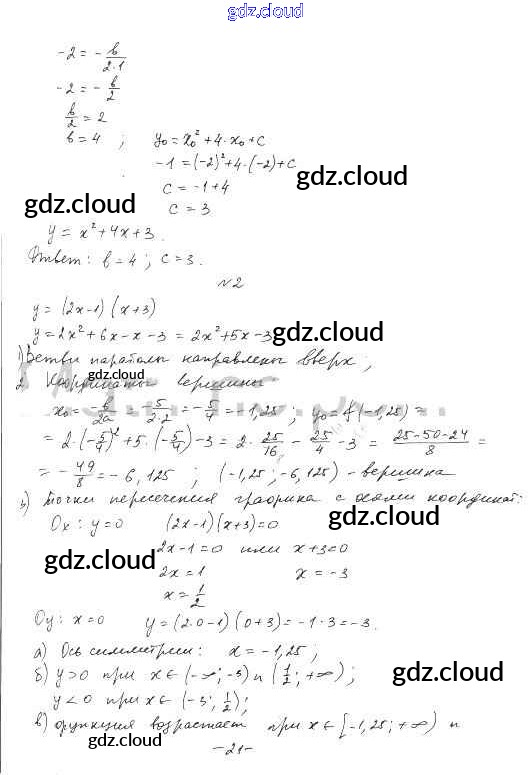 gdz.cloud
-2 = - b/(2·1)
-2 = - b/2
b/2 = 2
b = 4 ; y₀ = x₀² + 4·x₀ + c
-1 = (-2)² + 4·(-2) + c
c = -1 + 4
gdz.cloud
gdz.cloud
c = 3
y = x² + 4x + 3.
Ответ: b = 4; c = 3.
№2
y = (2x-1)(x+3)
y = 2x² + 6x - x - 3 = 2x² + 5x - 3
gdz.cloud
1) Ветви параболы направлены вверх;
gdz.cloud
2. Координаты вершины
x₀ = - b/2a = -5/(2·2) = -5/4 = -1,25 ; y₀ = f(-1,25) =
= 2·(-5/4)² + 5·(-5/4) - 3 = 2· 25/16 - 25/4 - 3 = (25-50-24)/8 =
= - 49/8 = -6,125 ; (-1,25; -6,125) - вершина
gdz.cloud
3) Точки пересечения графика с осями координат:
Ox: y=0 (2x-1)(x+3)=0
gdz.cloud
gdz.cloud
2x-1=0 или x+3=0
2x=1 x=-3
x = 1/2
Oy: x=0 y=(2·0-1)(0+3)=-1·3=-3.
gdz.cloud
а) Ось симметрии: x = -1,25;
б) y>0 при x∈(-∞;-3) и (1/2; +∞);
gdz.cloud
y<0 при x∈(-3; 1/2);
в) функция возрастает при x∈[-1,25; +∞) и
gdz.cloud
-21-